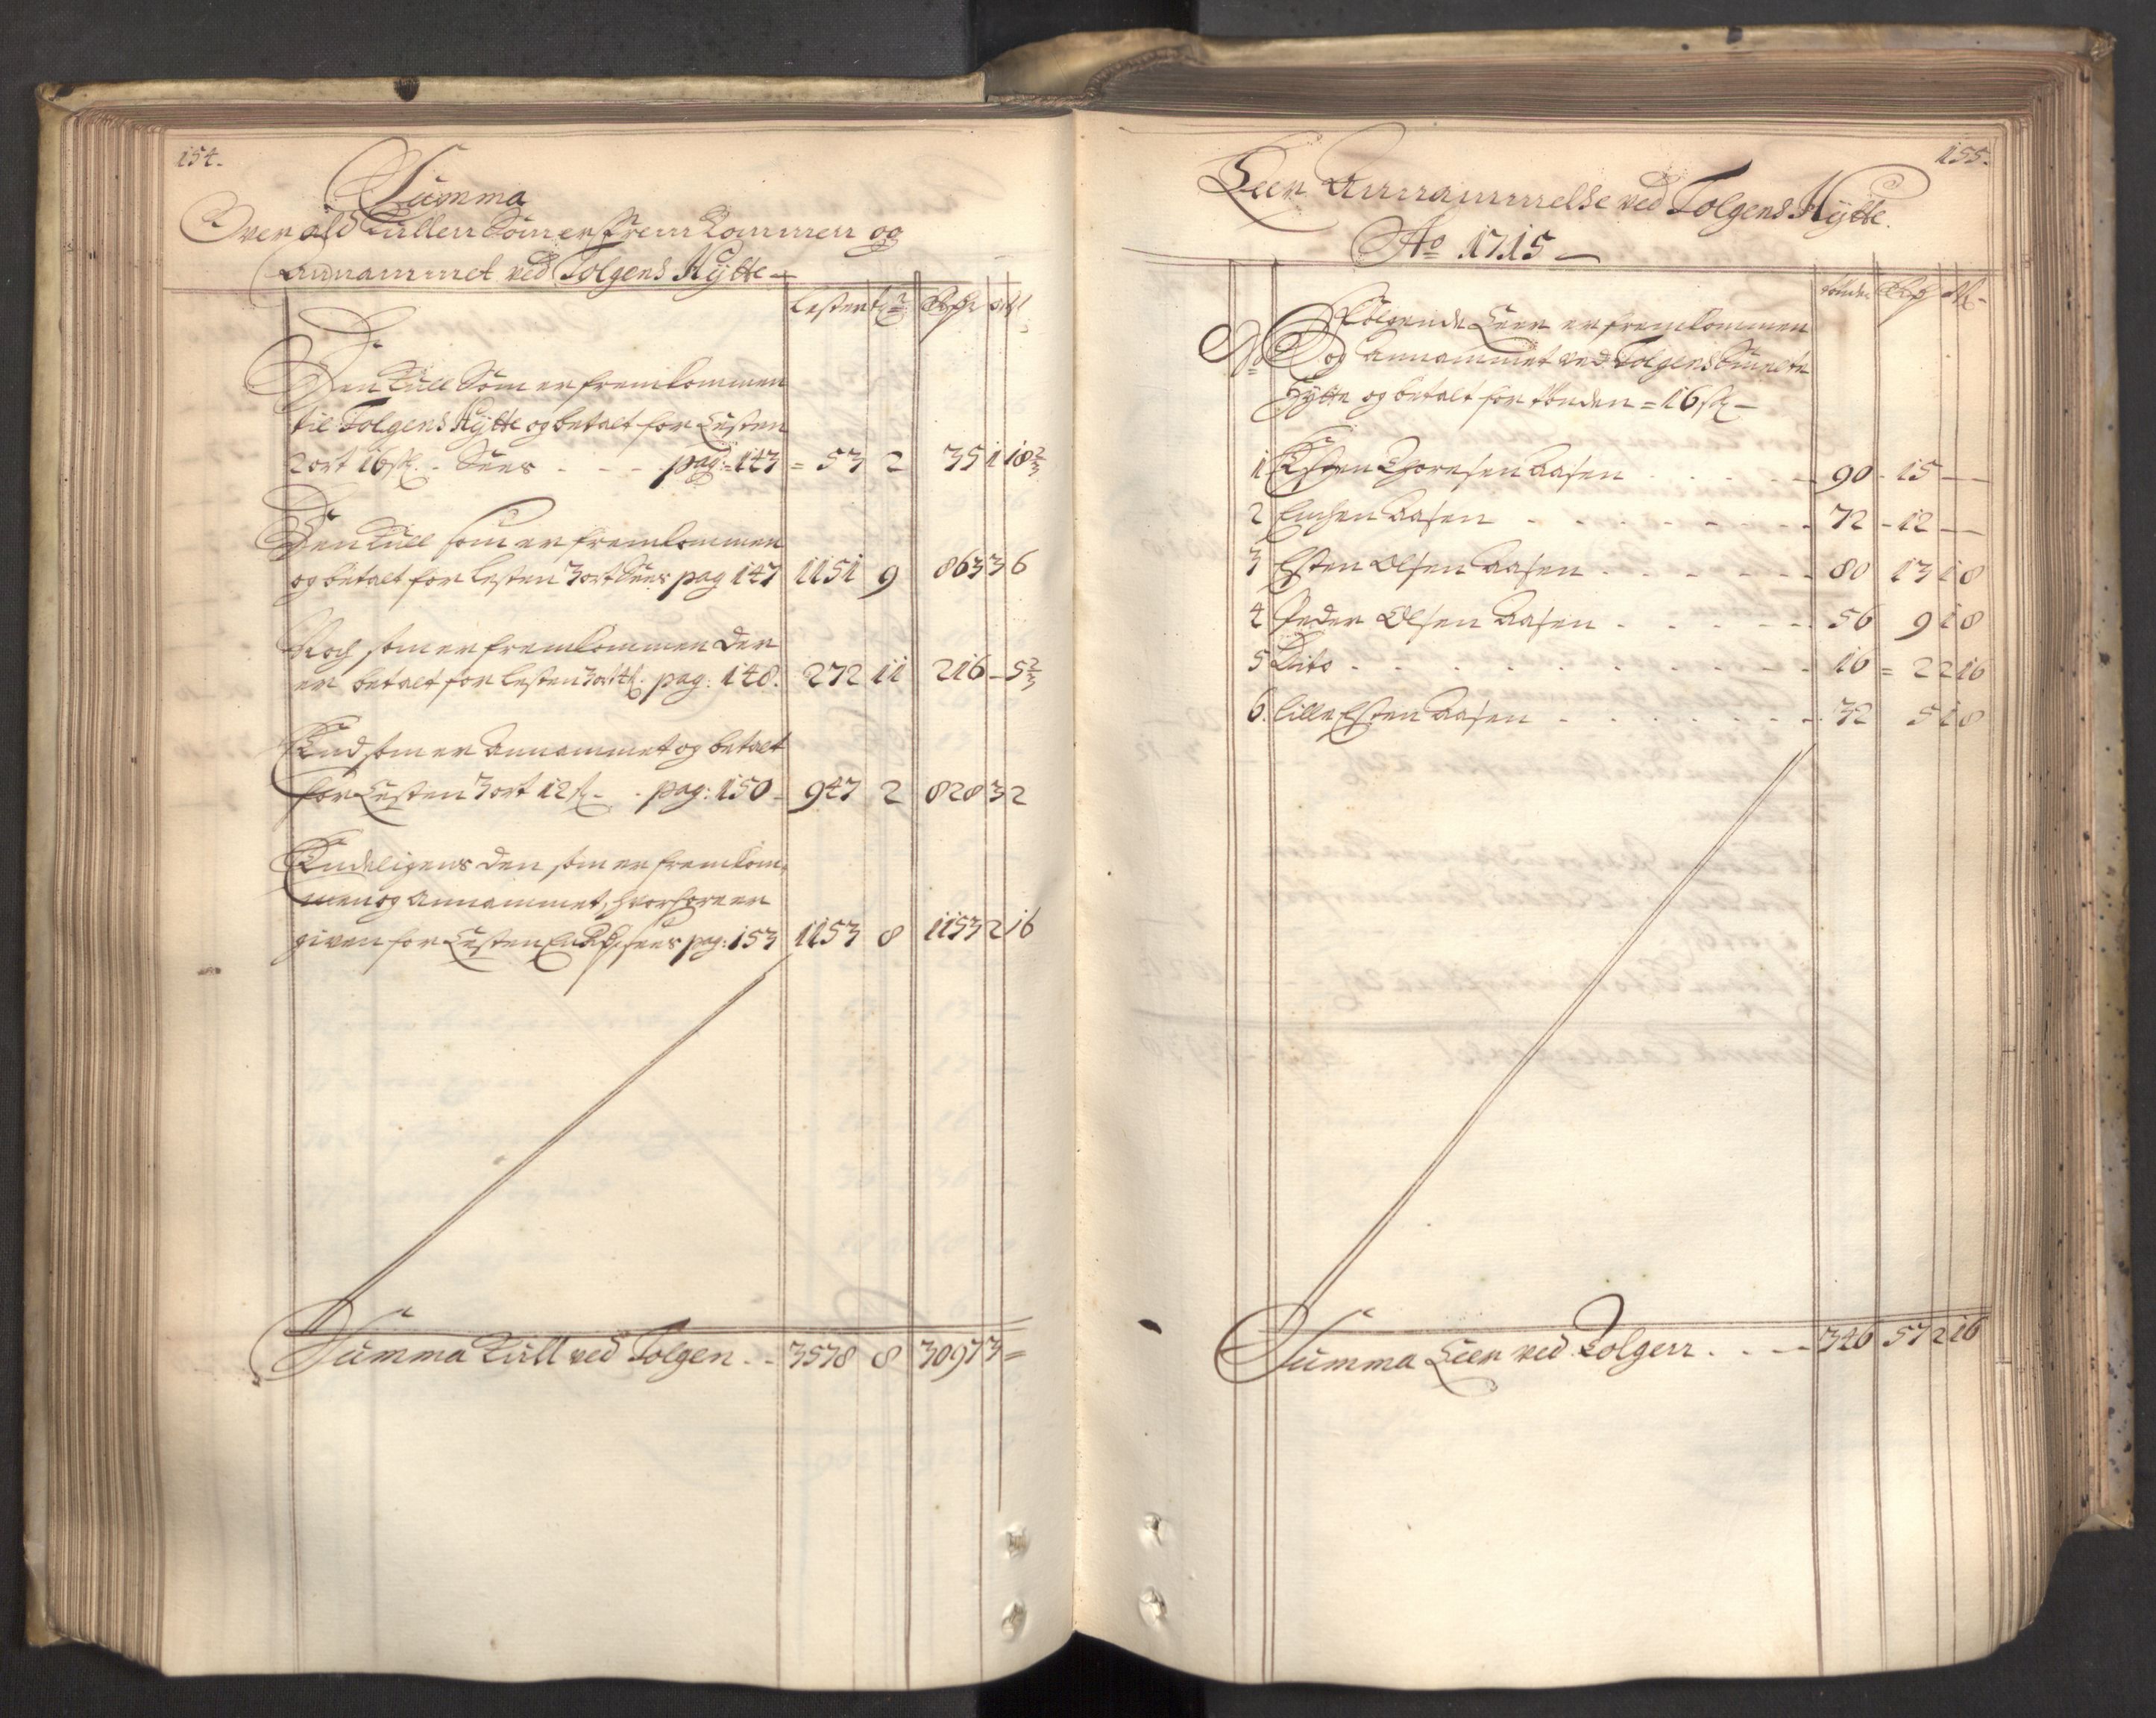 154.
Summa
Over ald Kullen Som er frem kommen og
Annammet ved Tolgens Hÿtte
Lester tr Rdr ort
Den Kull Som er fremkommen
til Tolgens Hÿtte og betalt for Lesten
2 ort 16 sk. Sees . . . pag: 143 = 53 2 35 1 18 2/3
Den Kull som er fremkommen
og betalt for lesten 3 ort Sees pag 147 1151 9 863 3 6
Noch som er fremkommen der
er betalt for lesten 3 ort 4 sk. pag: 148. 272 11 216 - 5 2/3
End som er Annammet og betalt
for Lesten 3 ort 12 sk. . pag: 150 947 2 828 3 2
Endeligens den som er fremkom-
men og Annammet, hvorfore er
given for Lesten En Rdr sees pag: 153 1153 8 1153 2 16
Summa Kull ved Tolgen . . 3578 8 3097 3 =
155.
Leer Annammelse ved Tolgens Hÿtte.
Ao 1715
Tønder Rdr
No Følgende Leer er fremkommen
og Annammet ved Tolgens Smelte
Hÿtte og betalt for tønden = 16 sk
1 Esten Thoresen Aasen . . . 90 - 15 —
2 Enchen Aasen . . . 72 - 12 —
3 Esten Olsen Aasen . . . 80 13 1 8
4 Peder Olsen Aasen . . . 56 9 1 8
5 Dito . . . 16 = 2 2 16
6. lille Esten Aasen . . . 32 5 1 8
Summa Leer ved Tolgen . . . 346 57 2 16